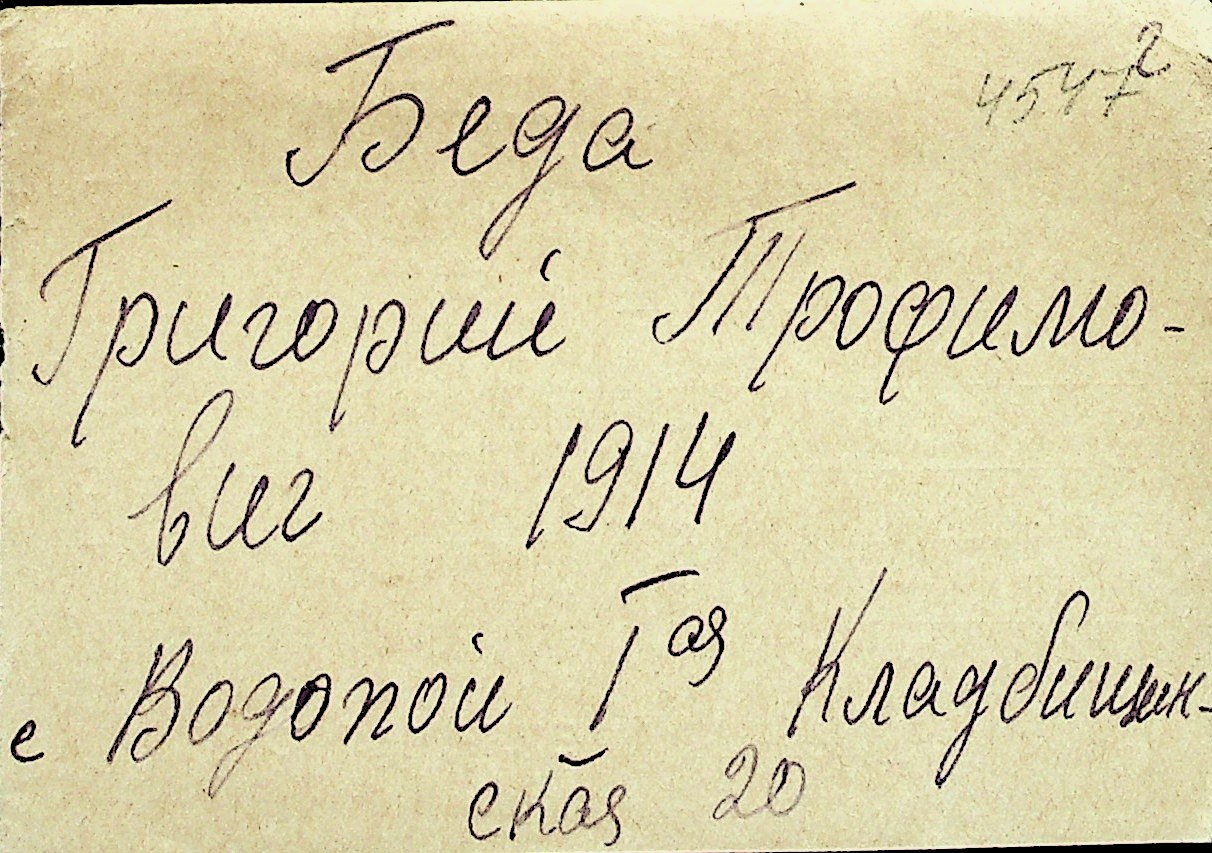 4547²
Беда
Григорий Трофимо-
вич 1914
с Водопой Iая Кладбищен-
ская 20